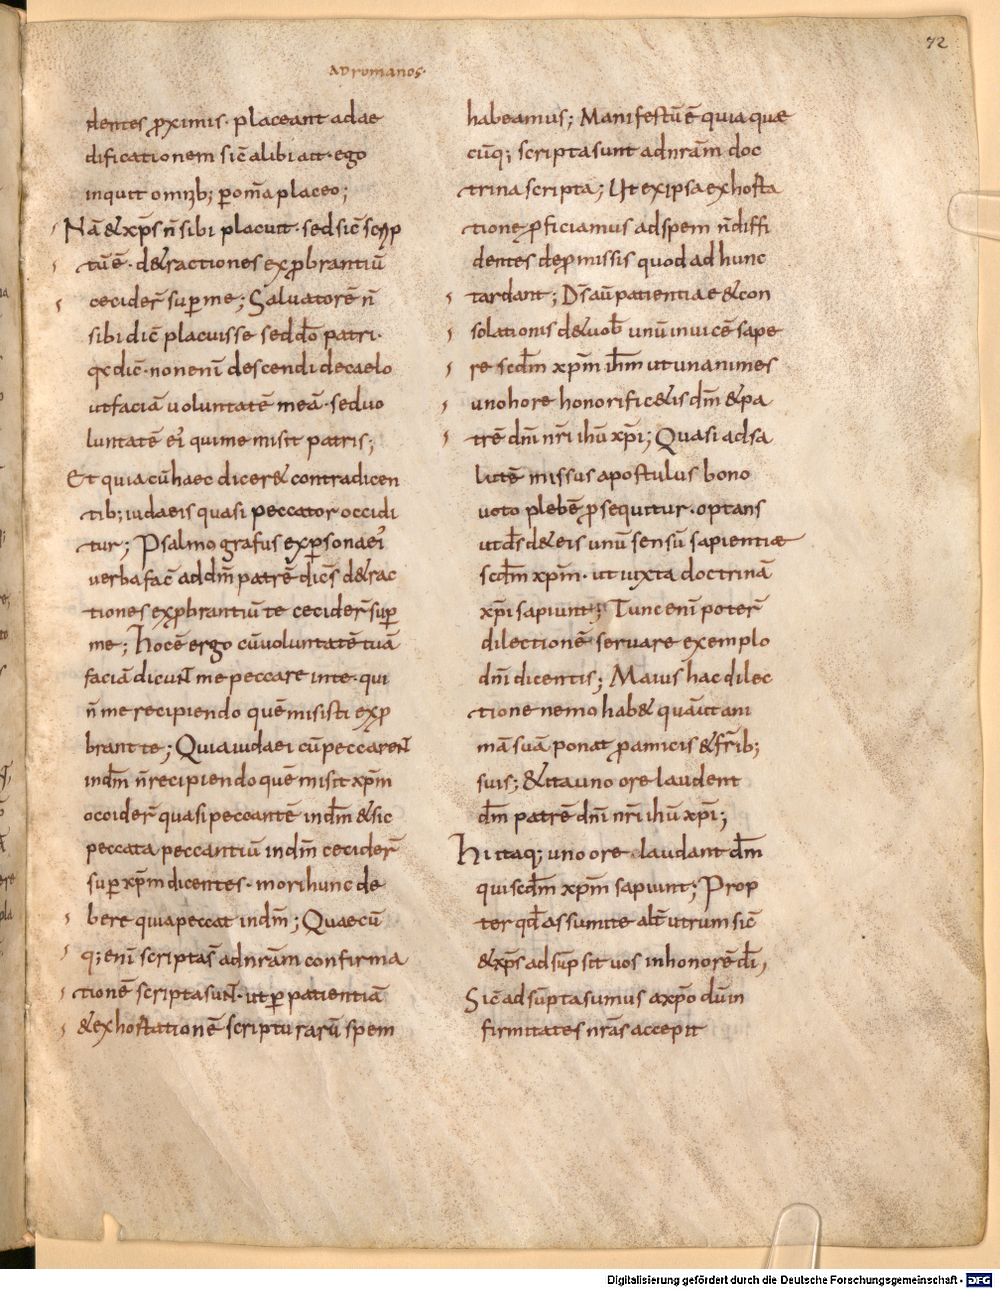 72
ad romanos·
dentes ꝓximis· placeant ad ae
dificationem sic̄ alibi ait· ego
inquit omnib; ꝑ om̄a placeo;
Nā & xp̄s n̄ sibi placuit· sed sic̄ scrip
tū ē· d&ractiones exꝓbrantiū
cecider̄ suꝑ me; Saluatorē n̄
sibi dic̄ placuisse sed dō patri·
qd̄ dic̄· non enī descendi de caelo
ut faciā uoluntatē meā· sed uo
luntatē ei' qui me misit patris;
Et quia cū haec dicer& contradicen
tib; iudaeis quasi peccator occidi
tur; Psalmografus ex ꝑsona ei'
uerba fac̄ ad dm̄ patrē dic̄s d&rac
tiones exꝓbrantiū te cecider̄ suꝑ
me; hoc ē ergo cū uoluntatē tuā
faciā dicunt me peccare in te· qui
n̄ me recipiendo quē misisti exꝓ
brant te; Quia iudaei cū peccarent
in dm̄ n̄ recipiendo quē misit xp̄m
occider̄ quasi peccantē in dm̄ & sic
peccata peccantiū in dm̄ cecider̄
suꝑ xp̄m dicentes· mori hunc de
bere quia peccat in dm̄; Quaecū
q; enī scripta s̄ ad nr̄am confirma
tionē scripta sunt· ut ꝑ patientiā
& exhortationē scripturarū spem
habeamus; Manifestū ē quia quae
cūq; scripta sunt ad nr̄am doc
trina scripta; Ut ex ipsa exhorta
tione ꝓficiamus ad spem n̄ diffi
dentes de ꝓmissis quod ad hunc
tardant; Ds̄ aū patientiae & con
solationis d& uob̄ unū inuicē sape
re scdm̄ xp̄m ih̄m ut unanimes
uno hore honorific&is dm̄ & pa
trē dn̄i nr̄i ih̄u xp̄i; Quasi ad sa
lutē missus apostulus bono
uoto plebē ꝓsequitur· optans
ut ds̄ d& eis unū sensū sapientiae
scdm̄ xp̄m· ut iuxta doctrinā
xp̄i sapiunt; Tunc enī poter̄
dilectionē seruare exemplo
dn̄i dicentis; Maius hac dilec
tione nemo hab& quā ut ani
mā suā ponat ꝓ amicis & fr̄ib;
suis; & ita uno ore laudent
dm̄ patrē dn̄i nr̄i ih̄u xp̄i;
Hi itaq; uno ore laudant dm̄
qui scdm̄ xp̄m sapiunt; Prop
ter qd̄ assumite alt̄utrum sic̄
& xp̄s adsūpsit uos in honorē dī,
Sic̄ adsūpti sumus a xp̄o dum
firmitates nr̄as accepit
Digitalisierung gefördert durch die Deutsche Forschungsgemeinschaft - DFG